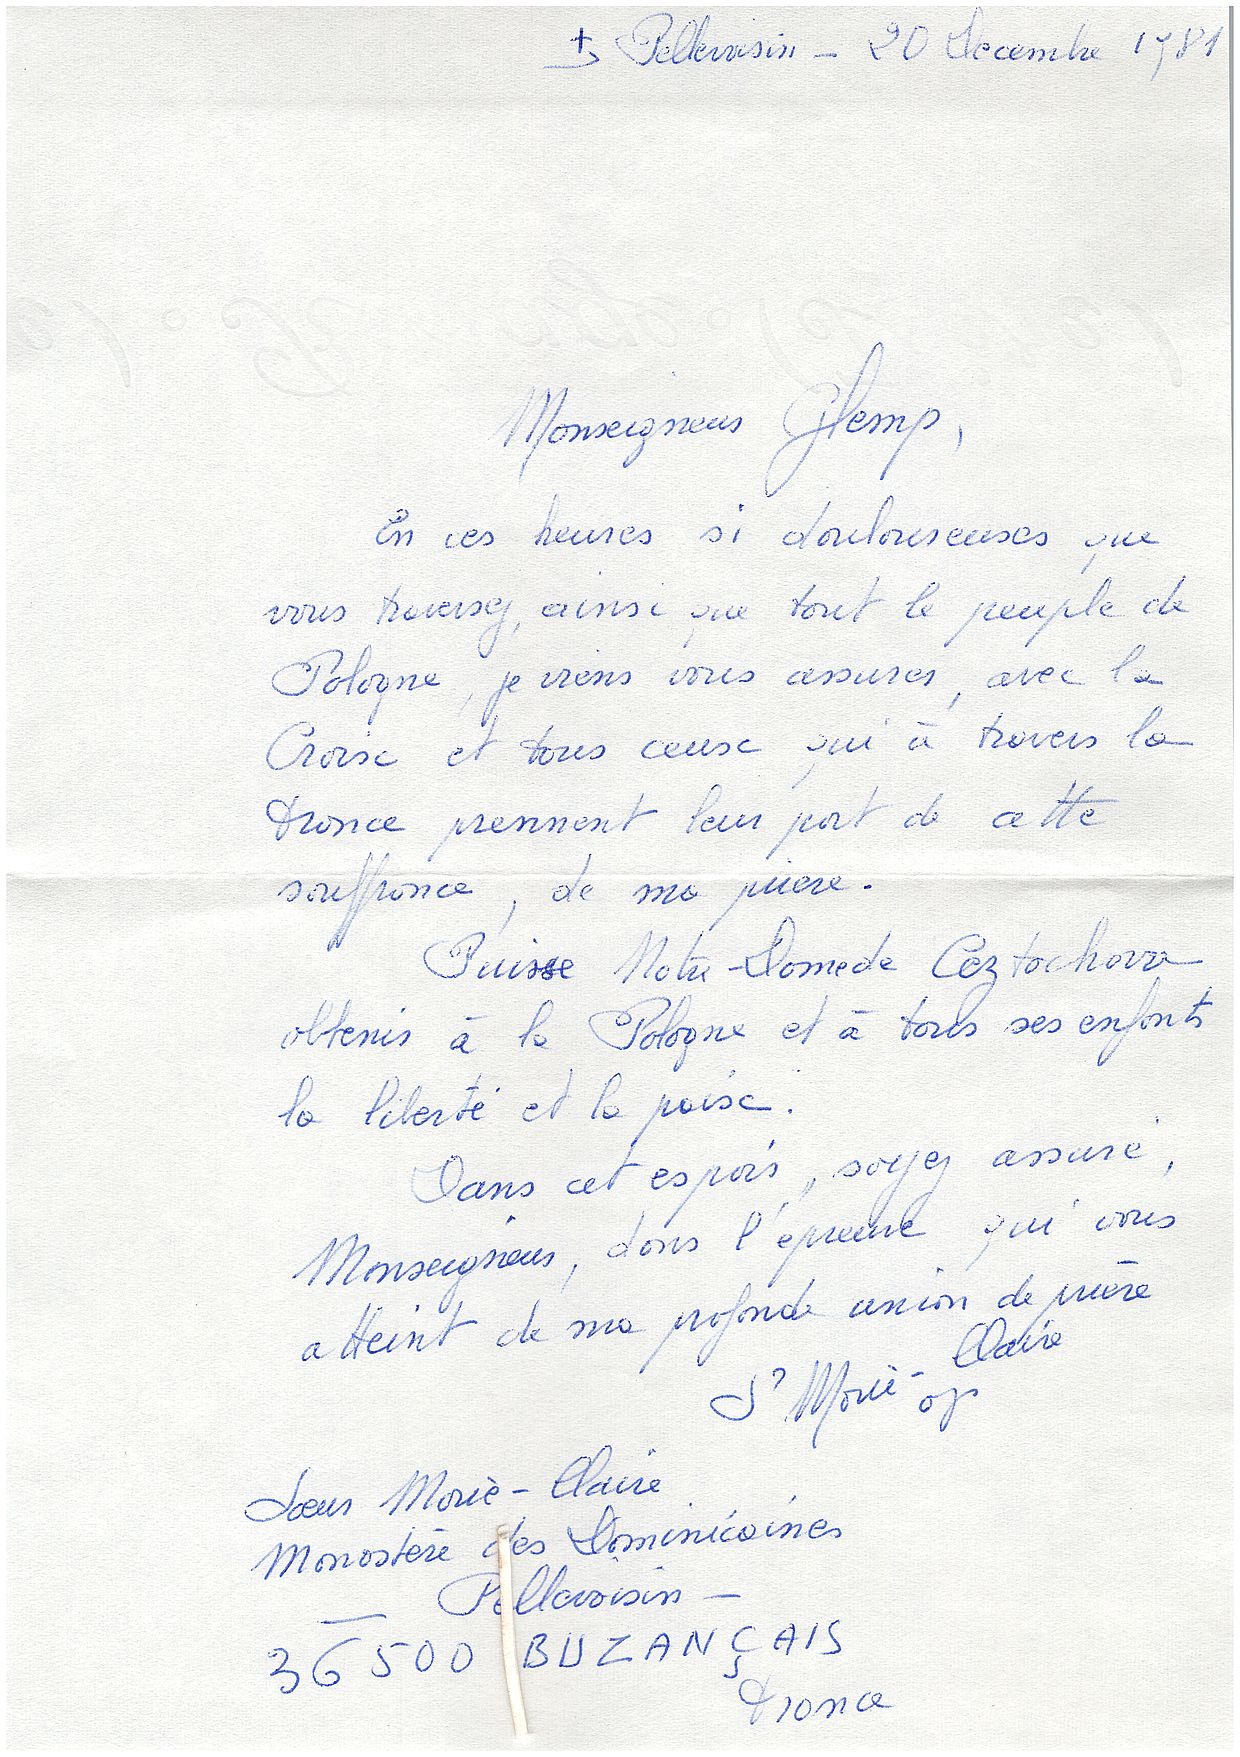 † Pellevoisin - 20 Décembre 1981
Monseigneur Glemp,
En ces heures si douloureuses que
vous traversez, ainsi que tout le peuple de
Pologne, je viens vous assurer, avec la
Croix et tous ceux qui à travers la
France prennent leur part de cette
souffrance, de ma prière.
Puisse Notre-Dame de Częztochova
obtenir à la Pologne et à tous ses enfants
la liberté et la paix.
Dans cet espoir, soyez assuré,
Monseigneur, dans l'épreuve qui vous
atteint de ma profonde union de prière
Sr Marie-Claire
op
Sœur Marie-Claire
Monastère des Dominicaines
Pellevoisin -
36500 BUZANÇAIS
France